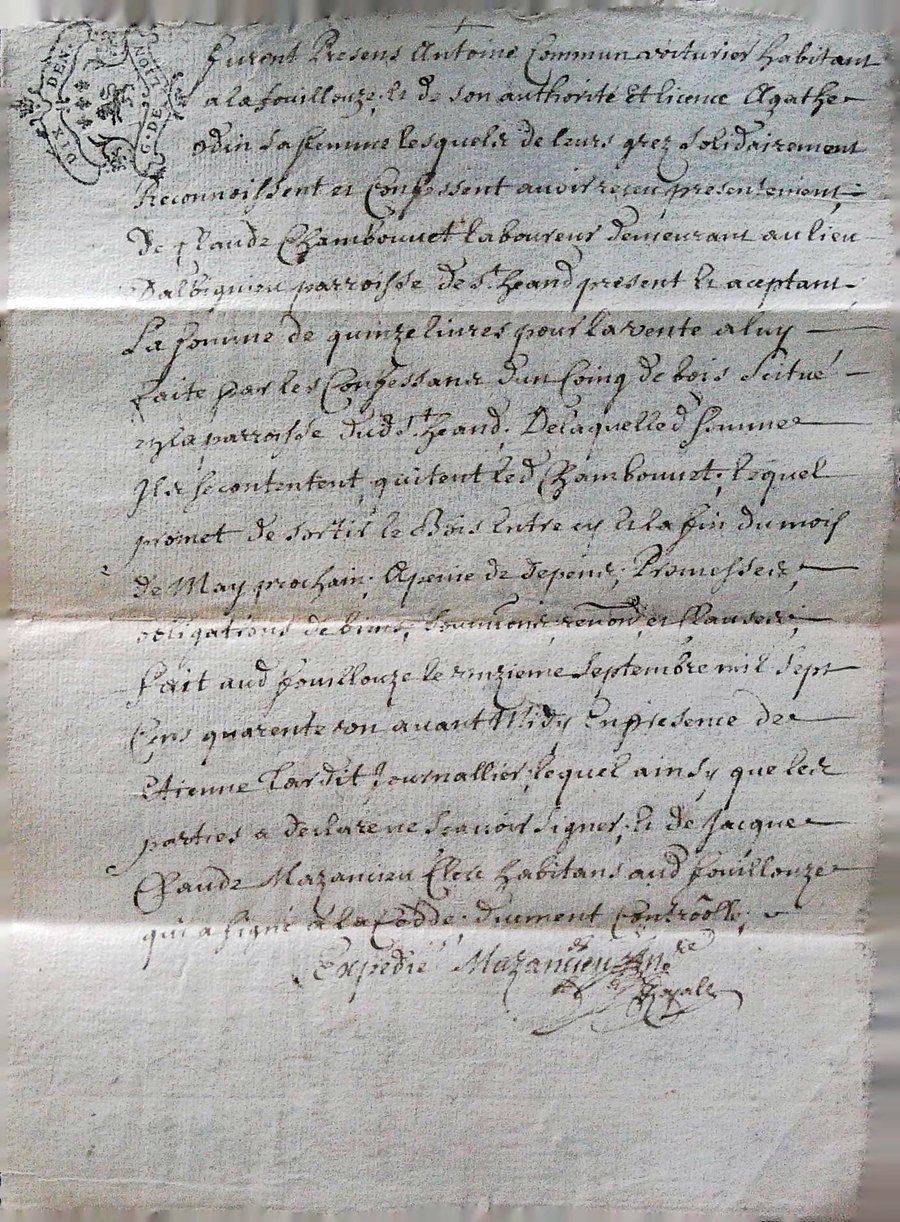 DIX DEN
G. DE
furent Presens Antoine Commun voiturier habitant
a la fouillouze, et de son authorité et licence Agathe
odin sa femme lesquels de leurs grez solidairement
Reconnoissent et Confessent avoir receu presentement
De Claude Chambouvet laboureur demeurant au lieu
Dalbiguieu parroisse de St heand present et aceptant
La somme de quinze livres pour la vente a luy
faite par les Confessans d'un Coing de bois scitué
en la parroisse dud St heand, De laquelle d somme
Ils se contentent, quitent led Chambouvet, lequel
promet de sortir le Bois Entre cy et la fin du mois
de May prochain; Apeine de depens, Promesses,
obligations de biens, soumons, renons, et Clauses,
fait aud fouillouze le onzieme septembre mil sept
Cens quarente avant Midy En presence de
Etienne tardit Journallier, lequel ainsy que les
parties a declaré ne scavoir signer, et de Jacque
Claude Mazancieu Clerc habitans aud fouillouze
qui a signé a la Cedde, duement Controllé,
Expedié Mazancieu nre
Royal